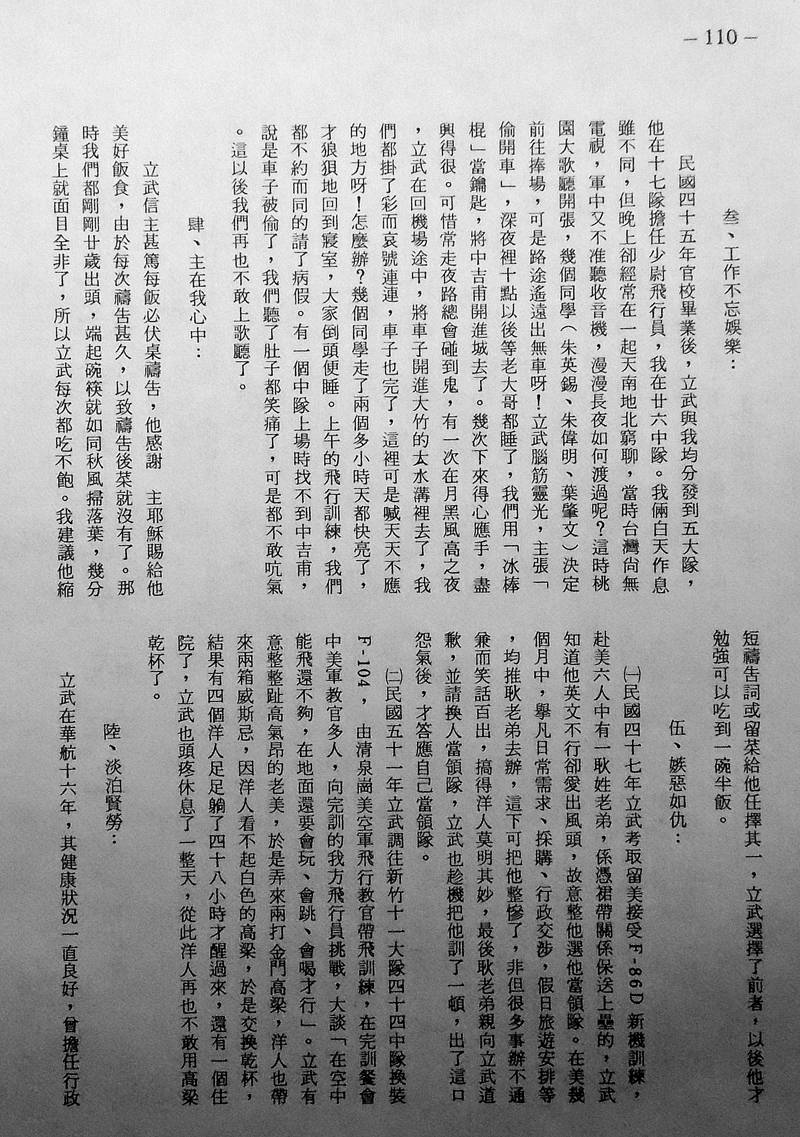 －110－
叁、工作不忘娛樂：
民國四十五年官校畢業後，立武與我均分發到五大隊，
他在十七隊擔任少尉飛行員，我在廿六中隊。我倆白天作息
雖不同，但晚上卻經常在一起天南地北窮聊，當時台灣尚無
電視，軍中又不准聽收音機，漫漫長夜如何渡過呢？這時桃
園大歌廳開張，幾個同學（朱英錫、朱偉明、葉肇文）決定
前往捧場，可是路途遙遠出無車呀！立武腦筋靈光，主張「
偷開車」，深夜裡十點以後等老大哥都睡了，我們用「冰棒
棍」當鑰匙，將中吉甫開進城去了。幾次下來得心應手，盡
興得很。可惜常走夜路總會碰到鬼，有一次在月黑風高之夜
，立武在回機場途中，將車子開進大竹的太水溝裡去了，我
們都掛了彩而哀號連連，車子也完了，這裡可是喊天天不應
的地方呀！怎麼辦？幾個同學走了兩個多小時天都快亮了，
才狼狽地回到寢室，大家倒頭便睡。上午的飛行訓練，我們
都不約而同的請了病假。有一個中隊上場時找不到中吉甫，
說是車子被偷了，我們聽了肚子都笑痛了，可是都不敢吭氣
。這以後我們再也不敢上歌廳了。
肆、主在我心中：
立武信主甚篤每飯必伏桌禱告，他感謝　主耶穌賜給他
美好飯食，由於每次禱告甚久，以致禱告後菜就沒有了。那
時我們都剛剛廿歲出頭，端起碗筷就如同秋風掃落葉，幾分
鐘桌上就面目全非了，所以立武每次都吃不飽。我建議他縮
短禱告詞或留菜給他任擇其一，立武選擇了前者，以後他才
勉強可以吃到一碗半飯。
伍、嫉惡如仇：
㈠民國四十七年立武考取留美接受F-86D新機訓練，
赴美六人中有一耿姓老弟，係憑裙帶關係保送上壘的，立武
知道他英文不行卻愛出風頭，故意整他選他當領隊。在美幾
個月中，舉凡日常需求、採購、行政交涉，假日旅遊安排等
，均推耿老弟去辦，這下可把他整慘了，非但很多事辦不通
兼而笑話百出，搞得洋人莫明其妙，最後耿老弟親向立武道
歉，並請換人當領隊，立武也趁機把他訓了一頓，出了這口
怨氣後，才答應自己當領隊。
㈡民國五十一年立武調往新竹十一大隊四十四中隊換裝
F-104，由清泉崗美空軍飛行教官帶飛訓練，在完訓餐會
中美軍教官多人，向完訓的我方飛行員挑戰，大談「在空中
能飛還不夠，在地面還要會玩、會跳、會喝才行」。立武有
意整整趾高氣昂的老美，於是弄來兩打金門高梁，洋人也帶
來兩箱威斯忌，因洋人看不起白色的高梁，於是交換乾杯，
結果有四個洋人足足躺了四十八小時才醒過來，還有一個住
院了，立武也頭疼休息了一整天，從此洋人再也不敢用高梁
乾杯了。
陸、淡泊賢勞：
立武在華航十六年，其健康狀況一直良好，曾擔任行政